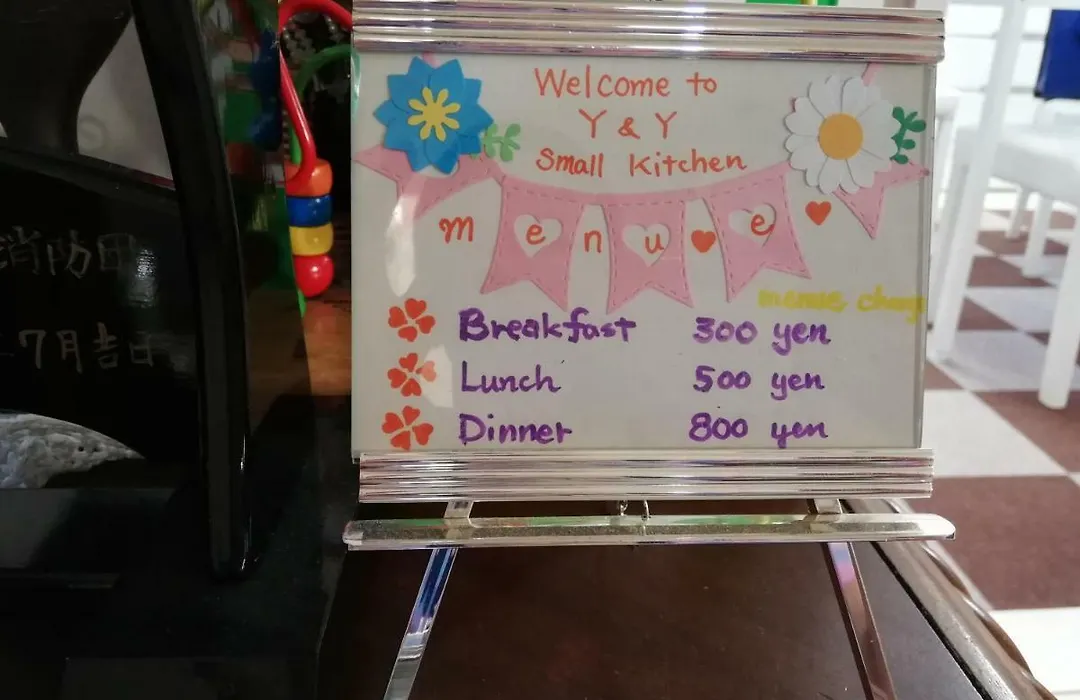 Welcome to
Y & Y
Small Kitchen
menu e
menus chang
Breakfast 300 yen
Lunch 500 yen
Dinner 800 yen
消防団
7月吉日